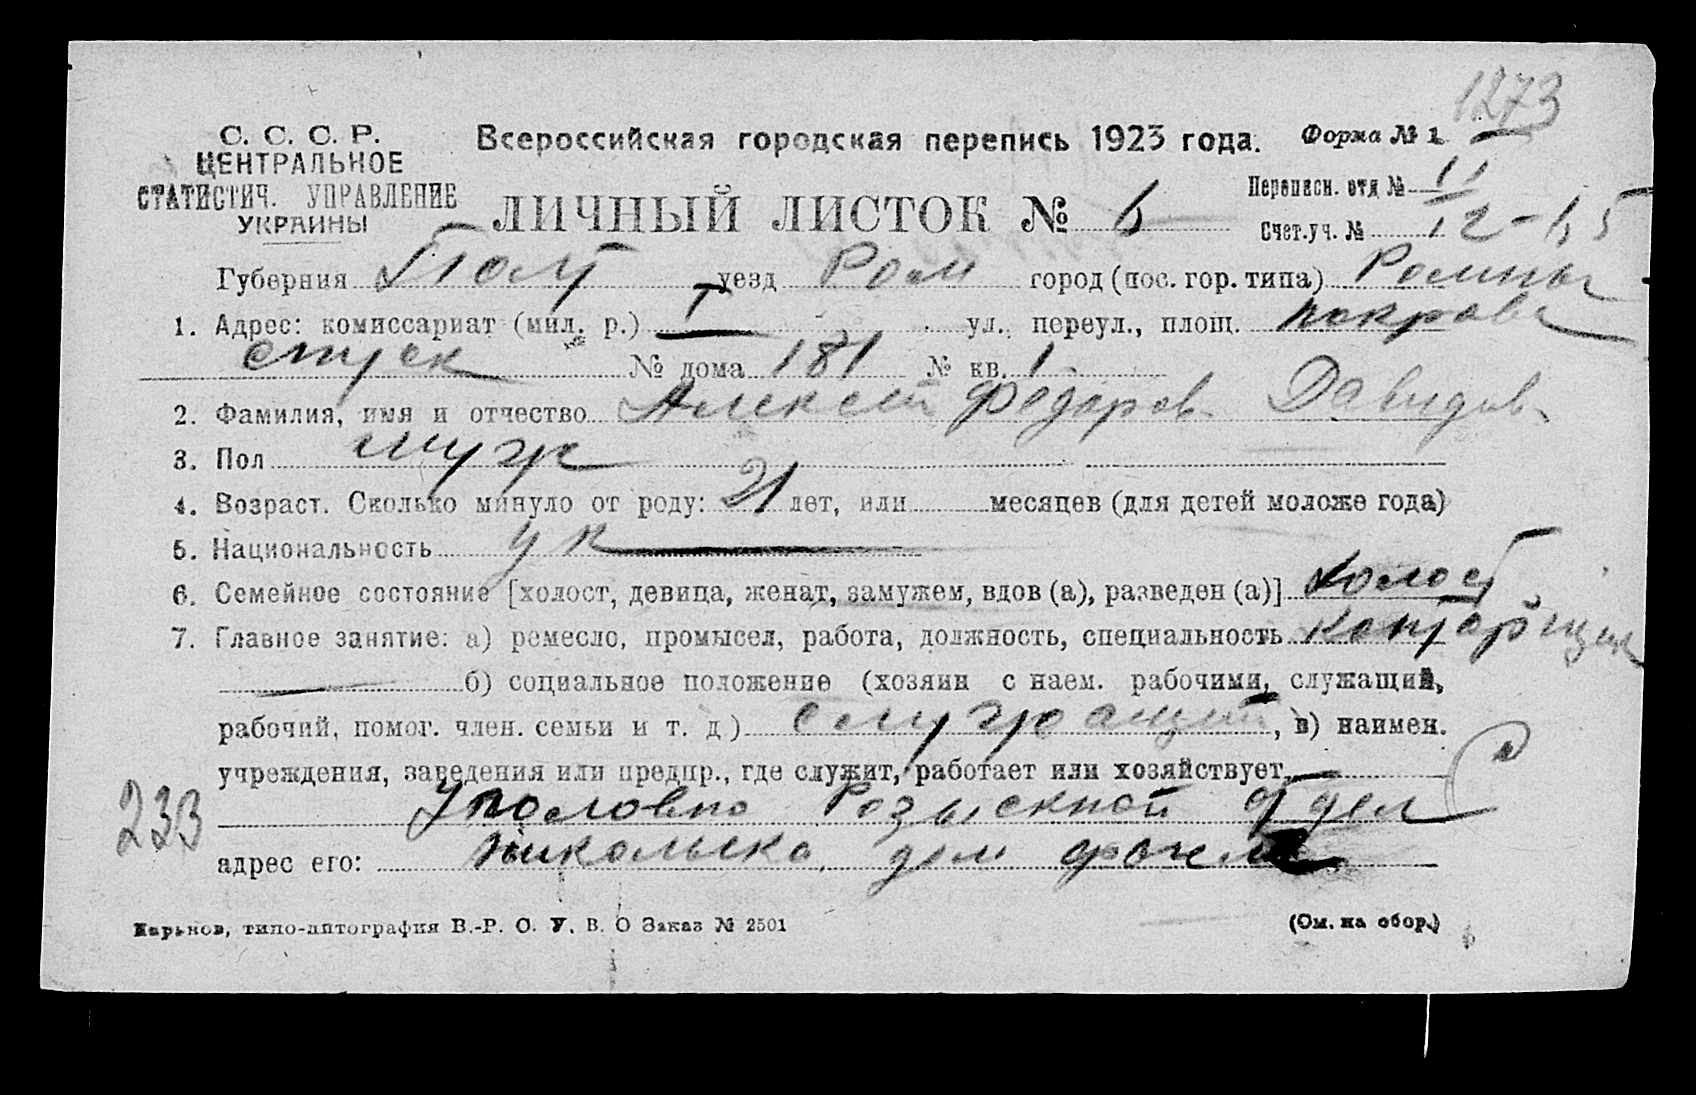 1273
С. С. С. Р.
ЦЕНТРАЛЬНОЕ
СТАТИСТИЧ. УПРАВЛЕНИЕ
УКРАИНЫ
Всероссийская городская перепись 1923 года. Форма № 1
ЛИЧНЫЙ ЛИСТОК № 6
Переписн. отд № 11
Счет.уч. № 12-
Губерния Полт уезд Ром город (пос. гор. типа) Ромны
1. Адрес: комиссариат (мил. р.) I ул., переул., площ. покровс
№ дома 181 № кв. 1
2. Фамилия, имя и отчество Алексей Федоров Давидов
3. Пол муж
4. Возраст. Сколько минуло от роду: 21 лет, или месяцев (для детей моложе года)
5. Национальность ук
6. Семейное состояние [холост, девица, женат, замужем, вдов (а), разведен (а)] холост
7. Главное занятие: а) ремесло, промысел, работа, должность, специальность конторщик
б) социальное положение (хозяин с наем. рабочими, служащий,
рабочий, помог. член. семьи и т. д.) служащий, в) наимен.
учреждения, заведения или предпр., где служит, работает или хозяйствует
Уголовно Розыскной отдел
233
адрес его: Никольска дом
Харьков, типо-литография В.-Р. О. У. В. О Заказ № 2501 (См. на обор.)